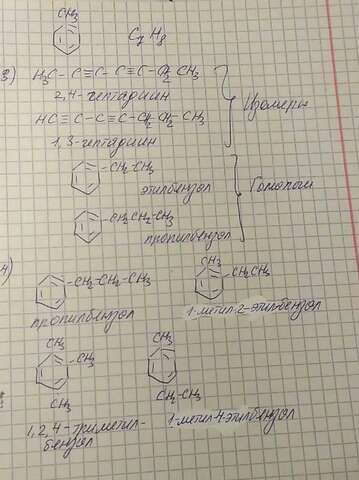 CH₃
C₇H₈
3) H₃C-C≡C-C≡C-CH₂-CH₃
2,4-гептадиин
HC≡C-C≡C-CH₂-CH₂-CH₃
1,3-гептадиин
Изомеры
-CH₂-CH₃
этилбензол
-CH₂CH₂-CH₃
пропилбензол
Гомологи
4)
-CH₂-CH₂-CH₃
пропилбензол
CH₃
-CH₂CH₃
1-метил-2-этилбензол
CH₃
CH₃
CH₃
1,2,4-триметил-
бензол
CH₃
CH₂-CH₃
1-метил-4этилбензол